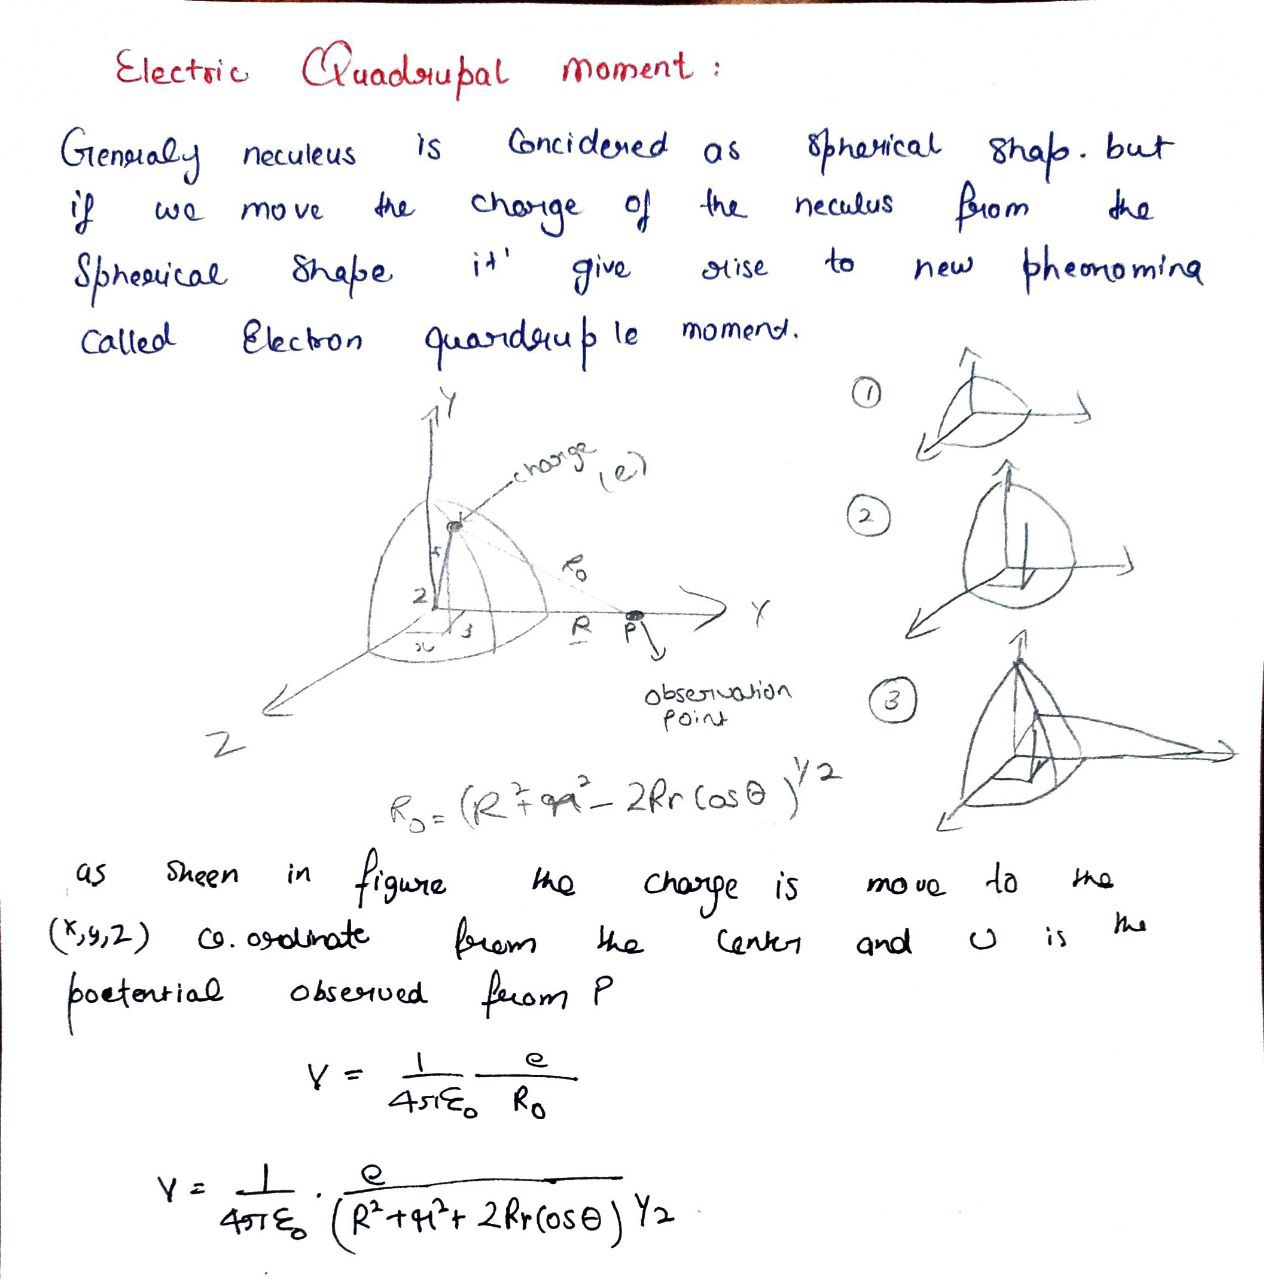 Electric Quadrupal moment :
Generaly neculeus is Concidered as Spherical Shap. but
if we move the charge of the neculus from the
Spherical Shape it' give rise to new pheonomina
Called Electron quardruple moment.
Y
charge (e)
①
②
③
r
R₀
2
x
3
R
P
Y
Z
observation
Point
R₀ = (R² + r² - 2Rr Cos θ)^1/2
as Sheen in figure the charge is move to the
(x,y,z) co.ordinate from the Center and υ is the
poetential observed from P
V = 1/4πε₀ e/R₀
V = 1/4πε₀ . e/(R² + r² + 2Rr Cos θ)^1/2